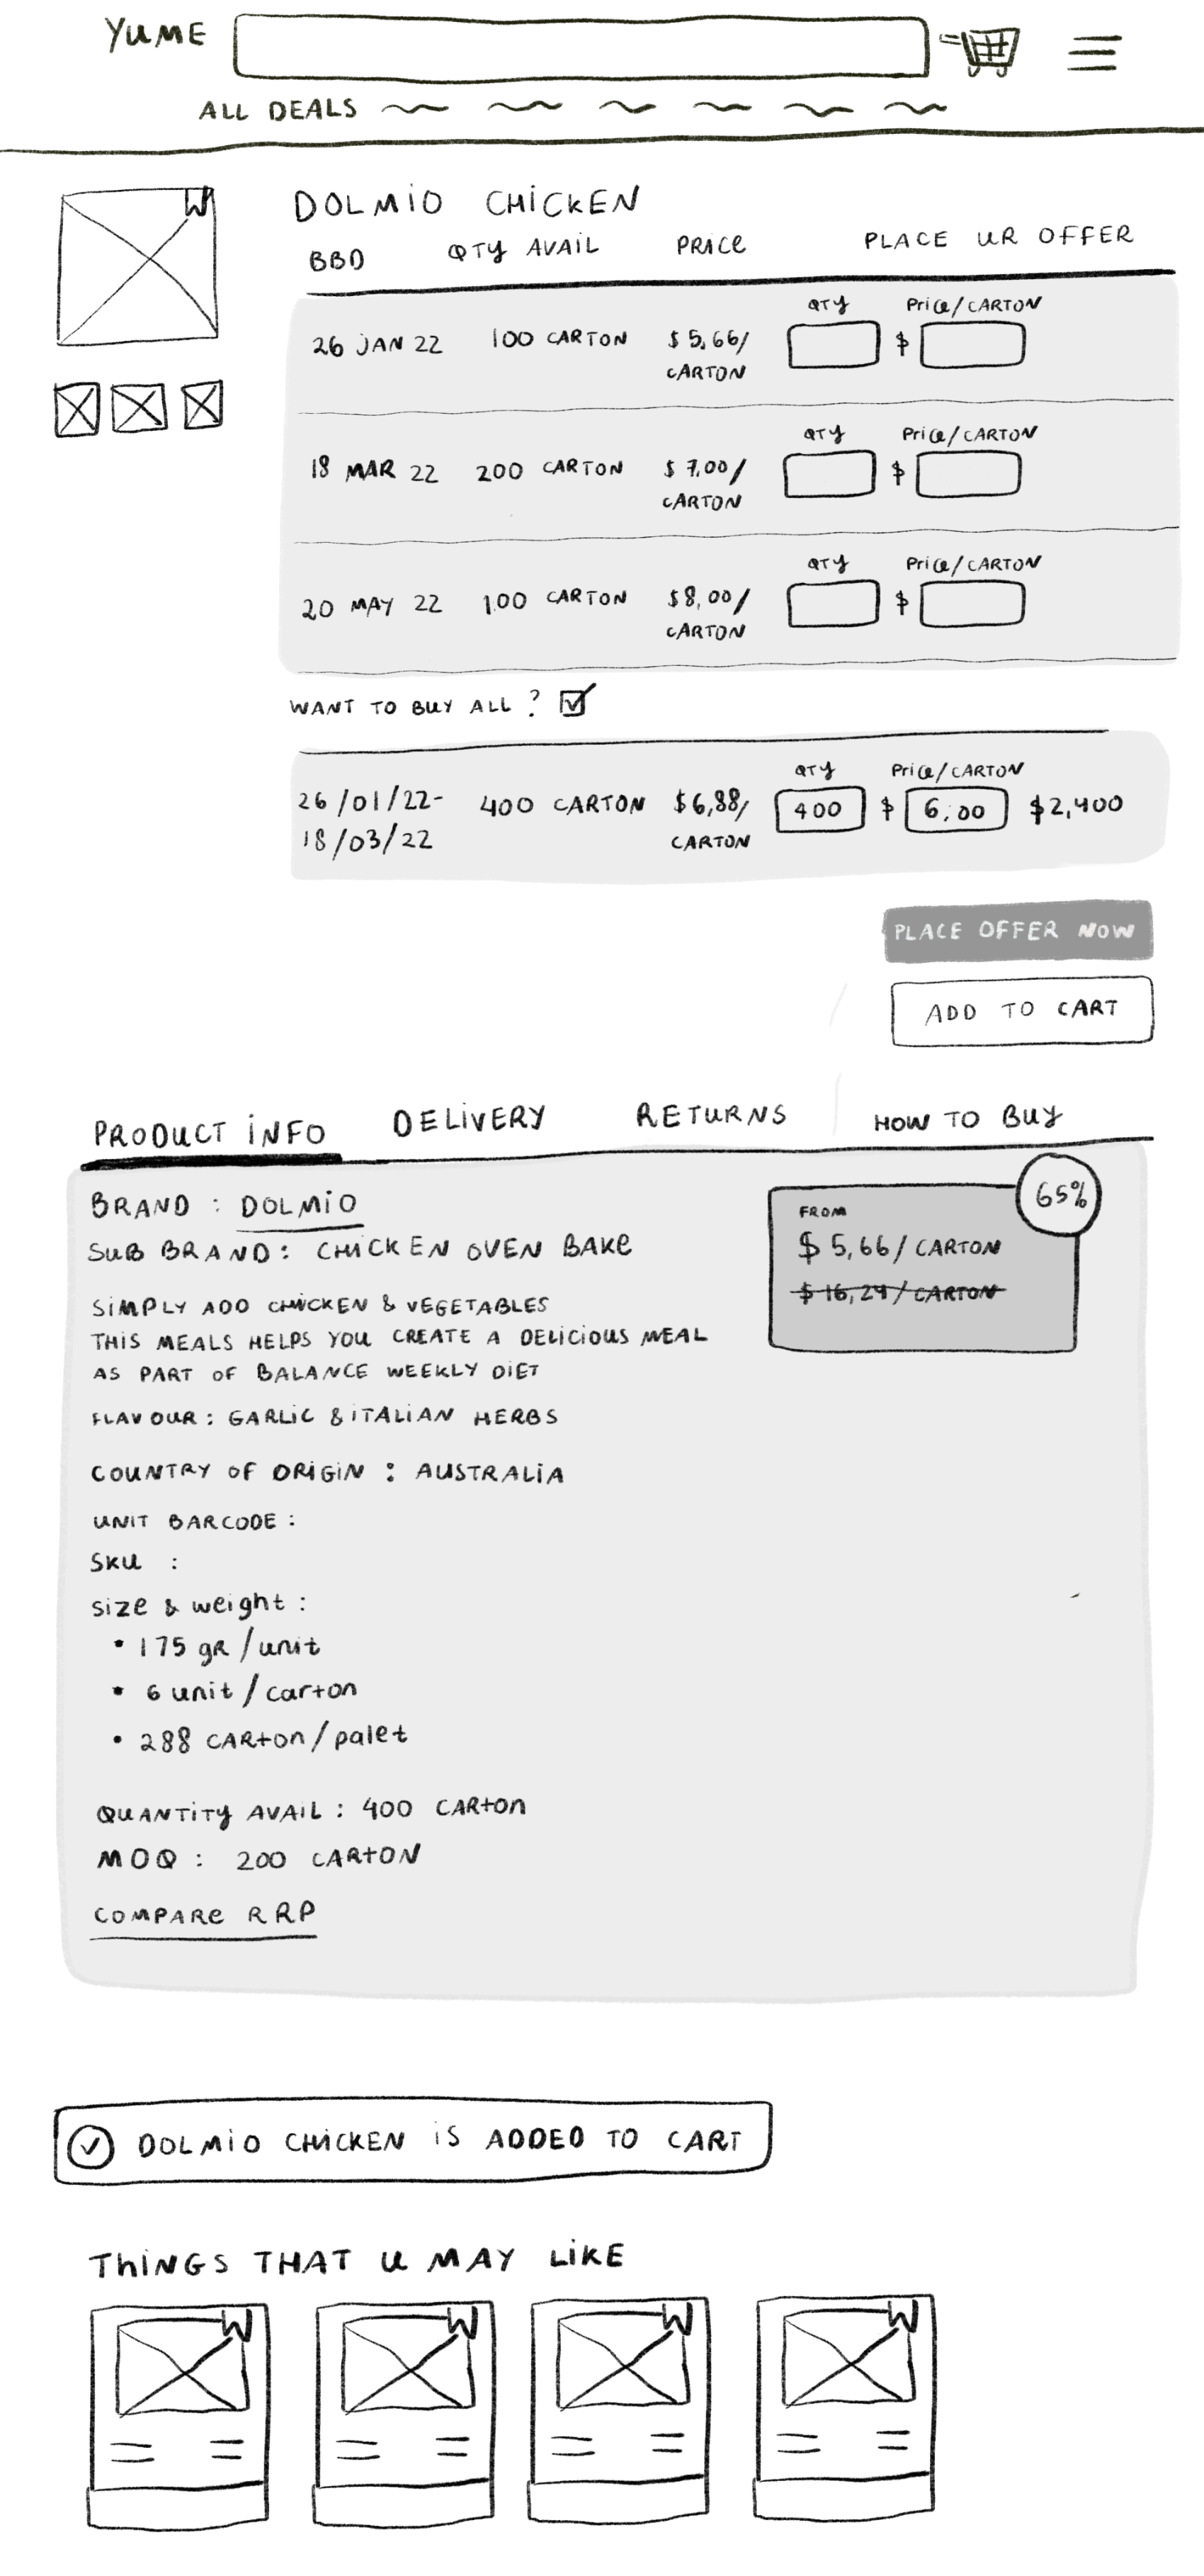 YUME
ALL DEALS
DOLMIO CHICKEN
BBD QTY AVAIL PRICE PLACE UR OFFER
QTY Price/CARTON
26 JAN 22 100 CARTON $5,66/ $
CARTON
QTY Price/CARTON
18 MAR 22 200 CARTON $7,00/ $
CARTON
QTY Price/CARTON
20 MAY 22 100 CARTON $8,00/ $
CARTON
WANT TO BUY ALL ?
QTY Price/CARTON
26/01/22- 400 CARTON $6,88/ 400 $ 6,00 $2,400
18/03/22 CARTON
PLACE OFFER NOW
ADD TO CART
PRODUCT INFO DELIVERY RETURNS HOW TO BUY
BRAND : DOLMIO
SUB BRAND : CHICKEN OVEN BAKE
SIMPLY ADD CHICKEN & VEGETABLES
THIS MEALS HELPS YOU CREATE A DELICIOUS MEAL
AS PART OF BALANCE WEEKLY DIET
FLAVOUR : GARLIC & ITALIAN HERBS
COUNTRY OF ORIGIN : AUSTRALIA
UNIT BARCODE :
SKU :
size & weight :
• 175 gR /unit
• 6 unit / carton
• 288 CARton/palet
QUANTITY AVAIL : 400 CARton
MOQ : 200 CARTON
COMPARE RRP
65%
FROM
$ 5,66/ CARTON
$ 16,24 / CARTON
DOLMIO CHICKEN IS ADDED TO CART
THINGS THAT U MAY LIKE